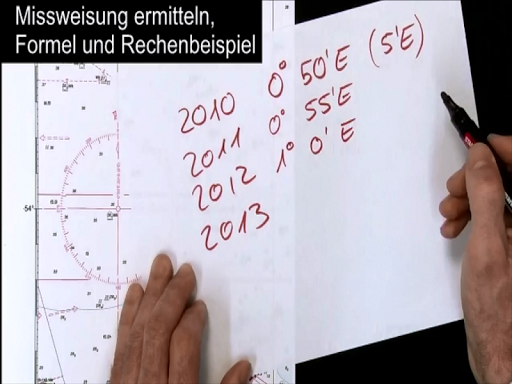 Missweisung ermitteln,
Formel und Rechenbeispiel
2010 0° 50'E (5'E)
2011 0° 55'E
2012 1° 0' E
2013
-54°